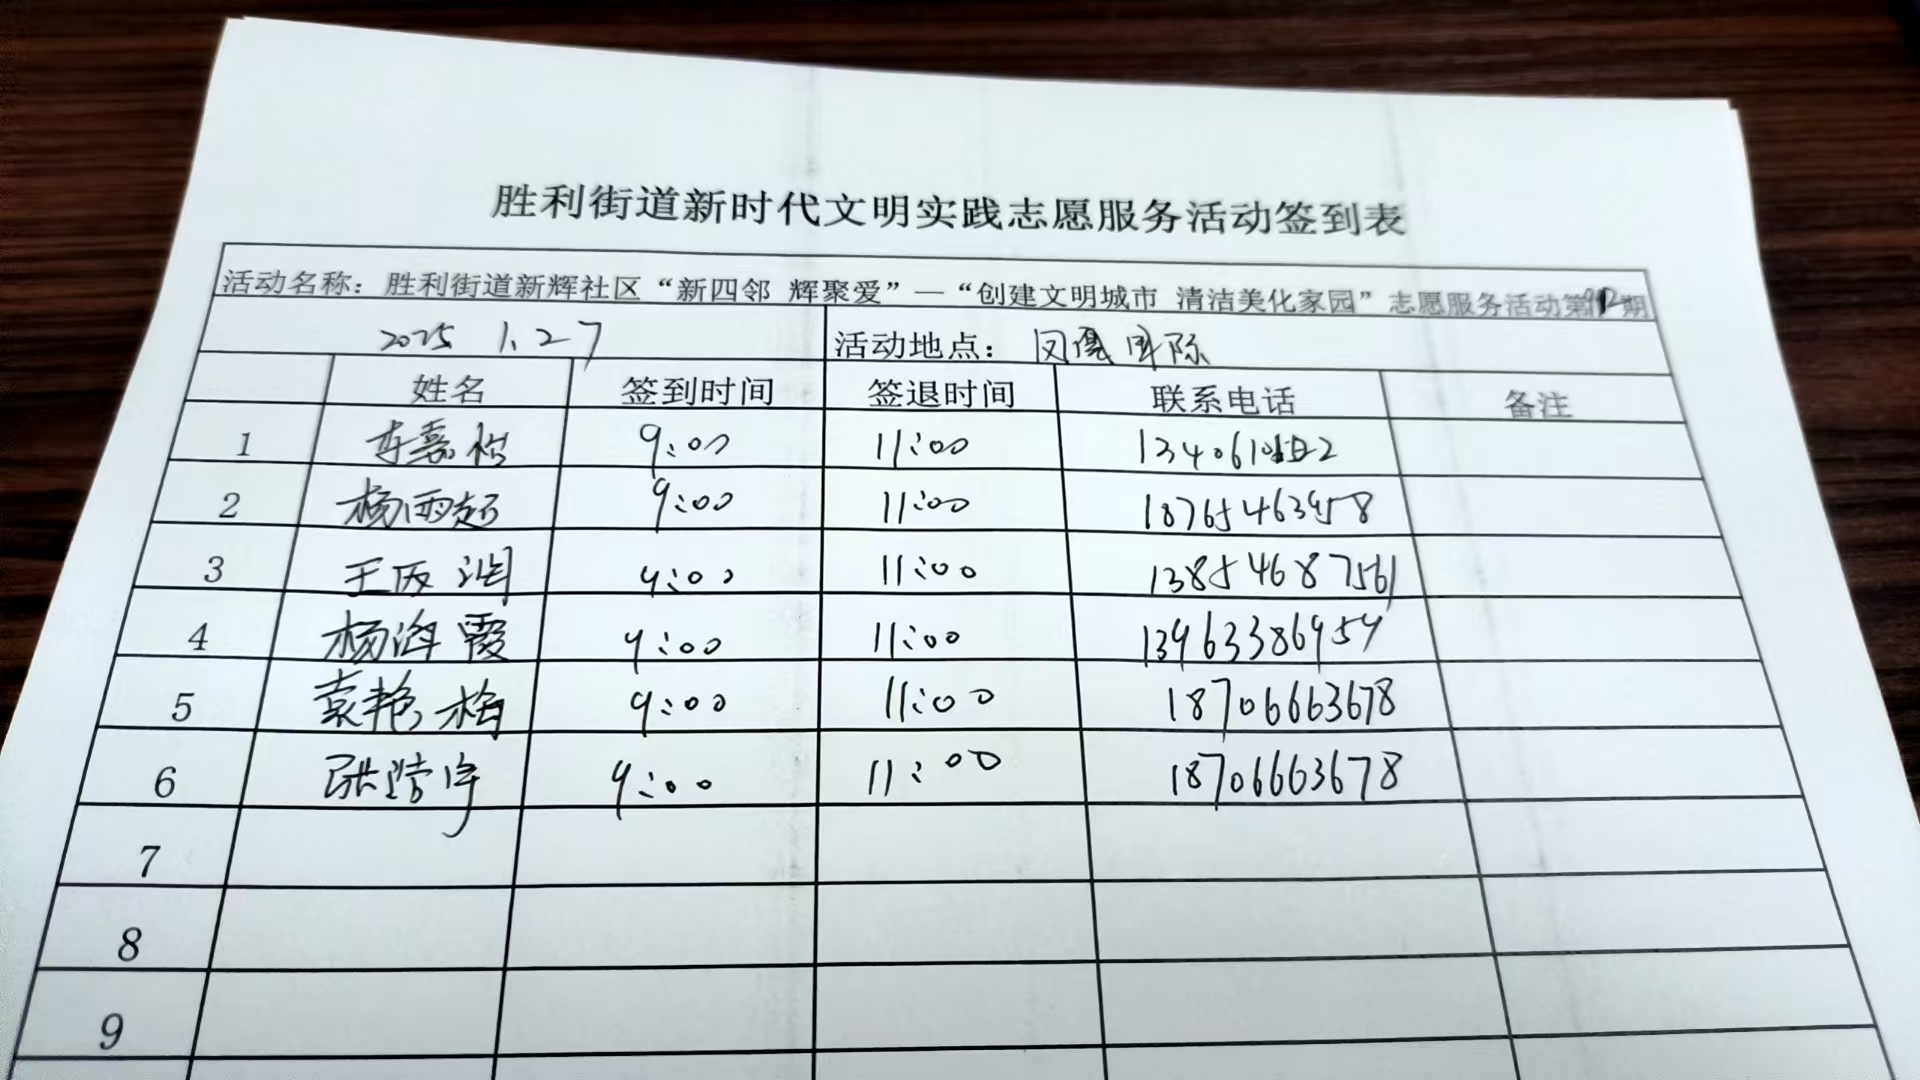 胜利街道新时代文明实践志愿服务活动签到表
活动名称：胜利街道新辉社区“新四邻 辉聚爱”—“创建文明城市 清洁美化家园”志愿服务活动第 期
2025 1.27 活动地点： 国际
姓名 签到时间 签退时间 联系电话 备注
1 李嘉怡 9:00 11:00
2 杨雨超 9:00 11:00 18765463958
3 王 润 9:00 11:00 13854687561
4 杨海霞 9:00 11:00 13963386959
5 袁艳梅 9:00 11:00 18706663678
6 张浩宇 9:00 11:00 18706663678
7
8
9